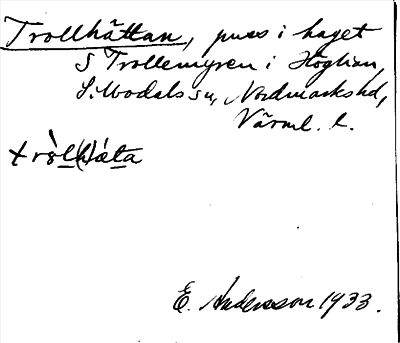 Trollhättan, puss i haget
S Trollemyren i Höglian,
Silbodals sn, Nordmarks hd,
Värml. l.
tròl(h)áta
E. Andersson 1933.